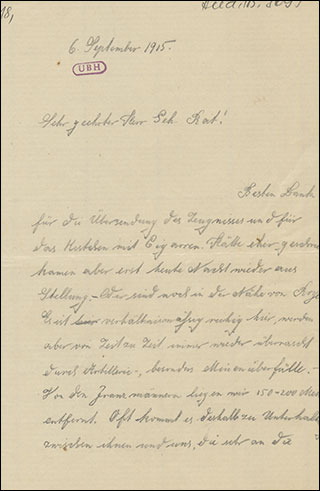 6. September 1915.
UBH
Sehr geehrter Herr Geh. Rat!
Besten Dank
für die Übersendung des Zeugnisses und für
das Kistchen mit Cigarren. Hätte eher geschr
kamen aber erst heute Nacht wieder aus
Stellung. – sind noch in der Nähe von
Es ist verhältnismäßig ruhig hier, werden
aber von Zeit zu Zeit immer wieder überrascht
durch Artillerie-, besonders Minenüberfälle.
Von den Franzmännern liegen wir 150-200 Met
entfernt. Oft kommt es deshalb zu Unterhalt
zwischen ihnen und uns, die sehr an die